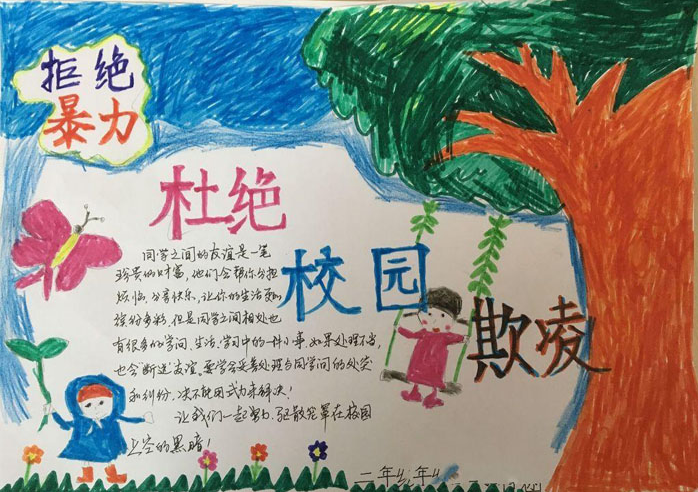 拒绝
暴力
杜绝
校园
欺凌
同学之间的友谊是一笔
珍贵的财富,他们会帮你分担
烦恼,分享快乐,让你的生活更加
缤纷多彩,但是同学之间相处也
有很多的学问、生活、学习中的一件小事,如果处理不当,
也会“断送”友谊。要学会妥善处理与同学间的冲突
和纠纷,决不能用武力来解决!
让我们一起努力,驱散笼罩在校园
上空的黑暗!
二年